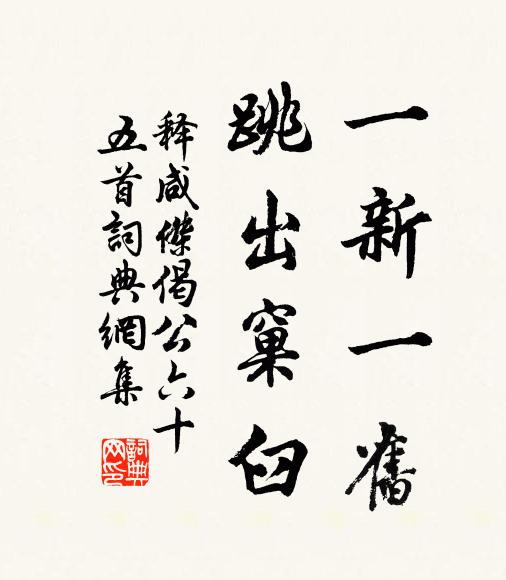 一新一舊
跳出窠臼
释咸傑偈公六十
五首詞典網集
詞典
网印